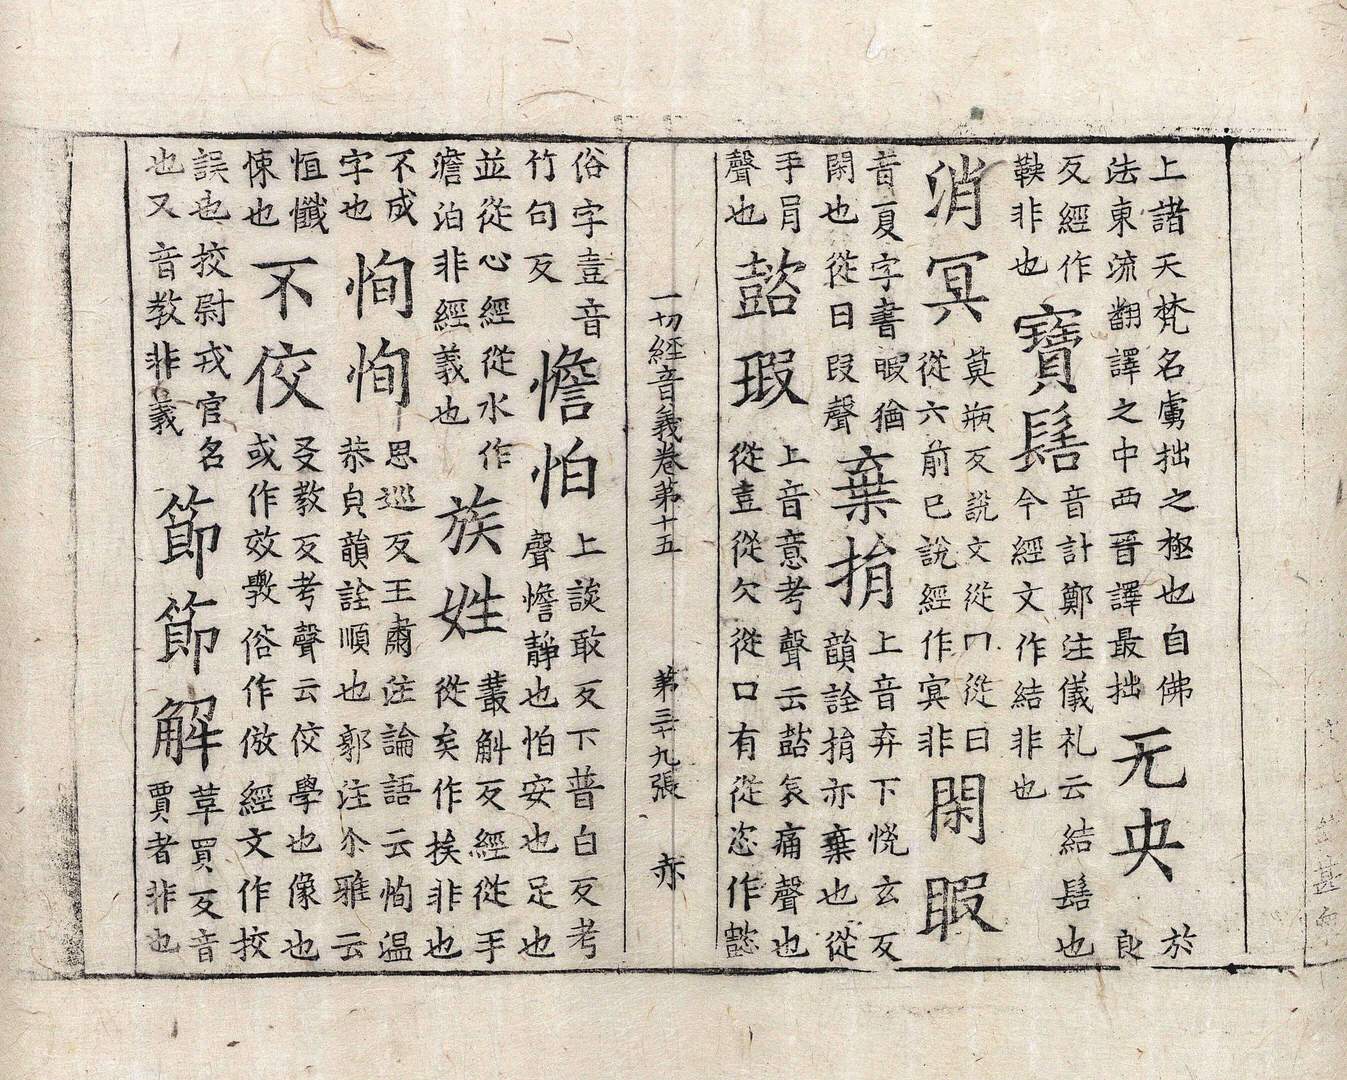 上諸天梵名虜拙之極也自佛法東流翻譯之中西晉譯最拙 无央 於良
反經作鞅非也 寶髻 音計鄭注儀礼云結髻也今經文作結非也
消冥 莫瓶反說文從冖從日從六前已說經作㝠非 閑暇
音夏字書暇猶閑也從日叚聲 棄捐 上音弃下悅玄反韻詮捐亦棄也從
手肙聲也 瑕 上音意考聲云哀痛聲也從壴從欠從口有從恣作懿
一切經音義卷第十五 第三十九張 亦
俗字壴音竹句反 憺怕 上談敢反下普白反考聲憺静也怕安也足也
並從心經從水作澹泊非經義也 族姓 叢斛反經從手從矣作挨非也
不成字也 恂恂 思巡反王肅注論語云恂温恭皃韻詮順也郭注尒雅云
恒懺悚也 不佼 爻教反考聲云佼學也像也或作效斆俗作倣經文作挍
誤也挍尉戎官名也又音教非義 節節解 革買反音賈者非也